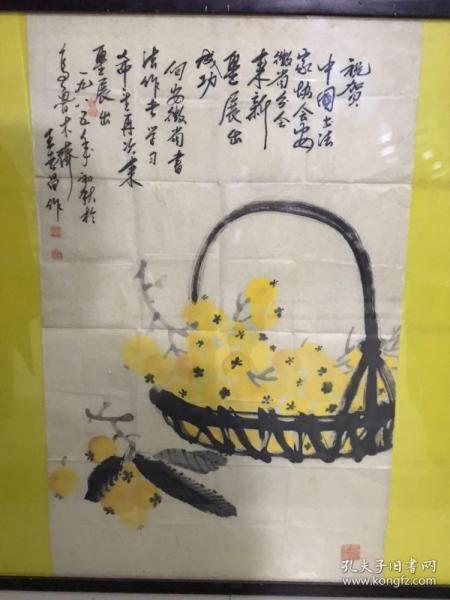 祝贺
中国书法
家协会安
徽省分会
来新
疆展出
成功
向安徽省书
法作者学习
希望再次来
疆展出
一九八五年初秋於
乌鲁木齐
王
昌作
孔夫子旧书网
www.kongfz.com